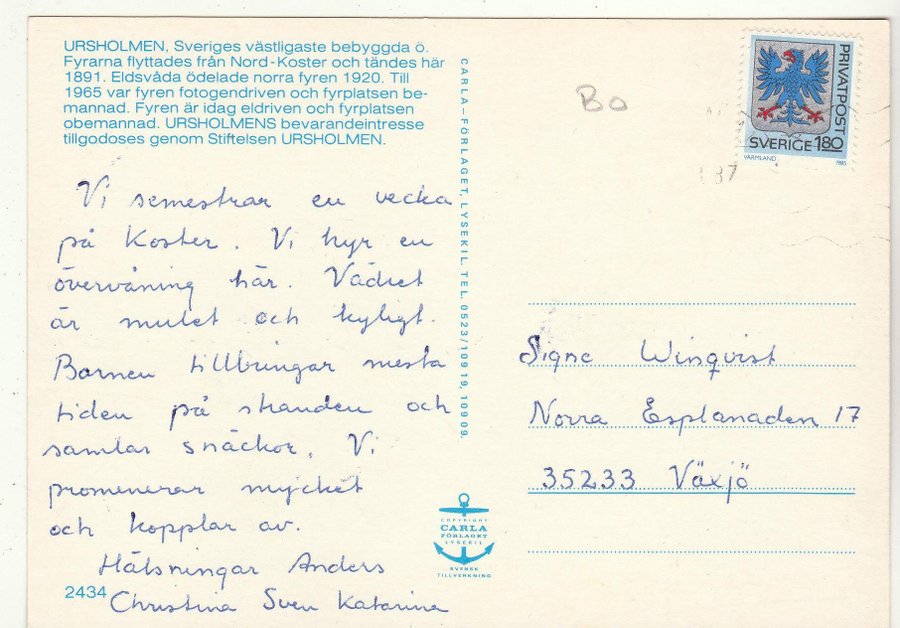 URSHOLMEN, Sveriges västligaste bebyggda ö.
Fyrarna flyttades från Nord-Koster och tändes här
1891. Eldsvåda ödelade norra fyren 1920. Till
1965 var fyren fotogendriven och fyrplatsen be-
mannad. Fyren är idag eldriven och fyrplatsen
obemannad. URSHOLMENS bevarandeintresse
tillgodoses genom Stiftelsen URSHOLMEN.
Vi semestrar en vecka
på Koster. Vi hyr en
övervåning här. Vädret
är mulet och kyligt.
Barnen tillbringar mesta
tiden på stranden och
samlar snäckor. Vi
promenerar mycket
och kopplar av.
Hälsningar Anders
Christina Sven Katarina
2434
CARLA-FÖRLAGET, LYSEKIL. TEL. 0523/109 19, 109 09.
COPYRIGHT
CARLA
FÖRLAGET
LYSEKIL
SVENSK
TILLVERKNING
Bo
PRIVATPOST
SVERIGE 180
VÄRMLAND 1985
87
Signe Winqvist
Norra Esplanaden 17
35233 Växjö